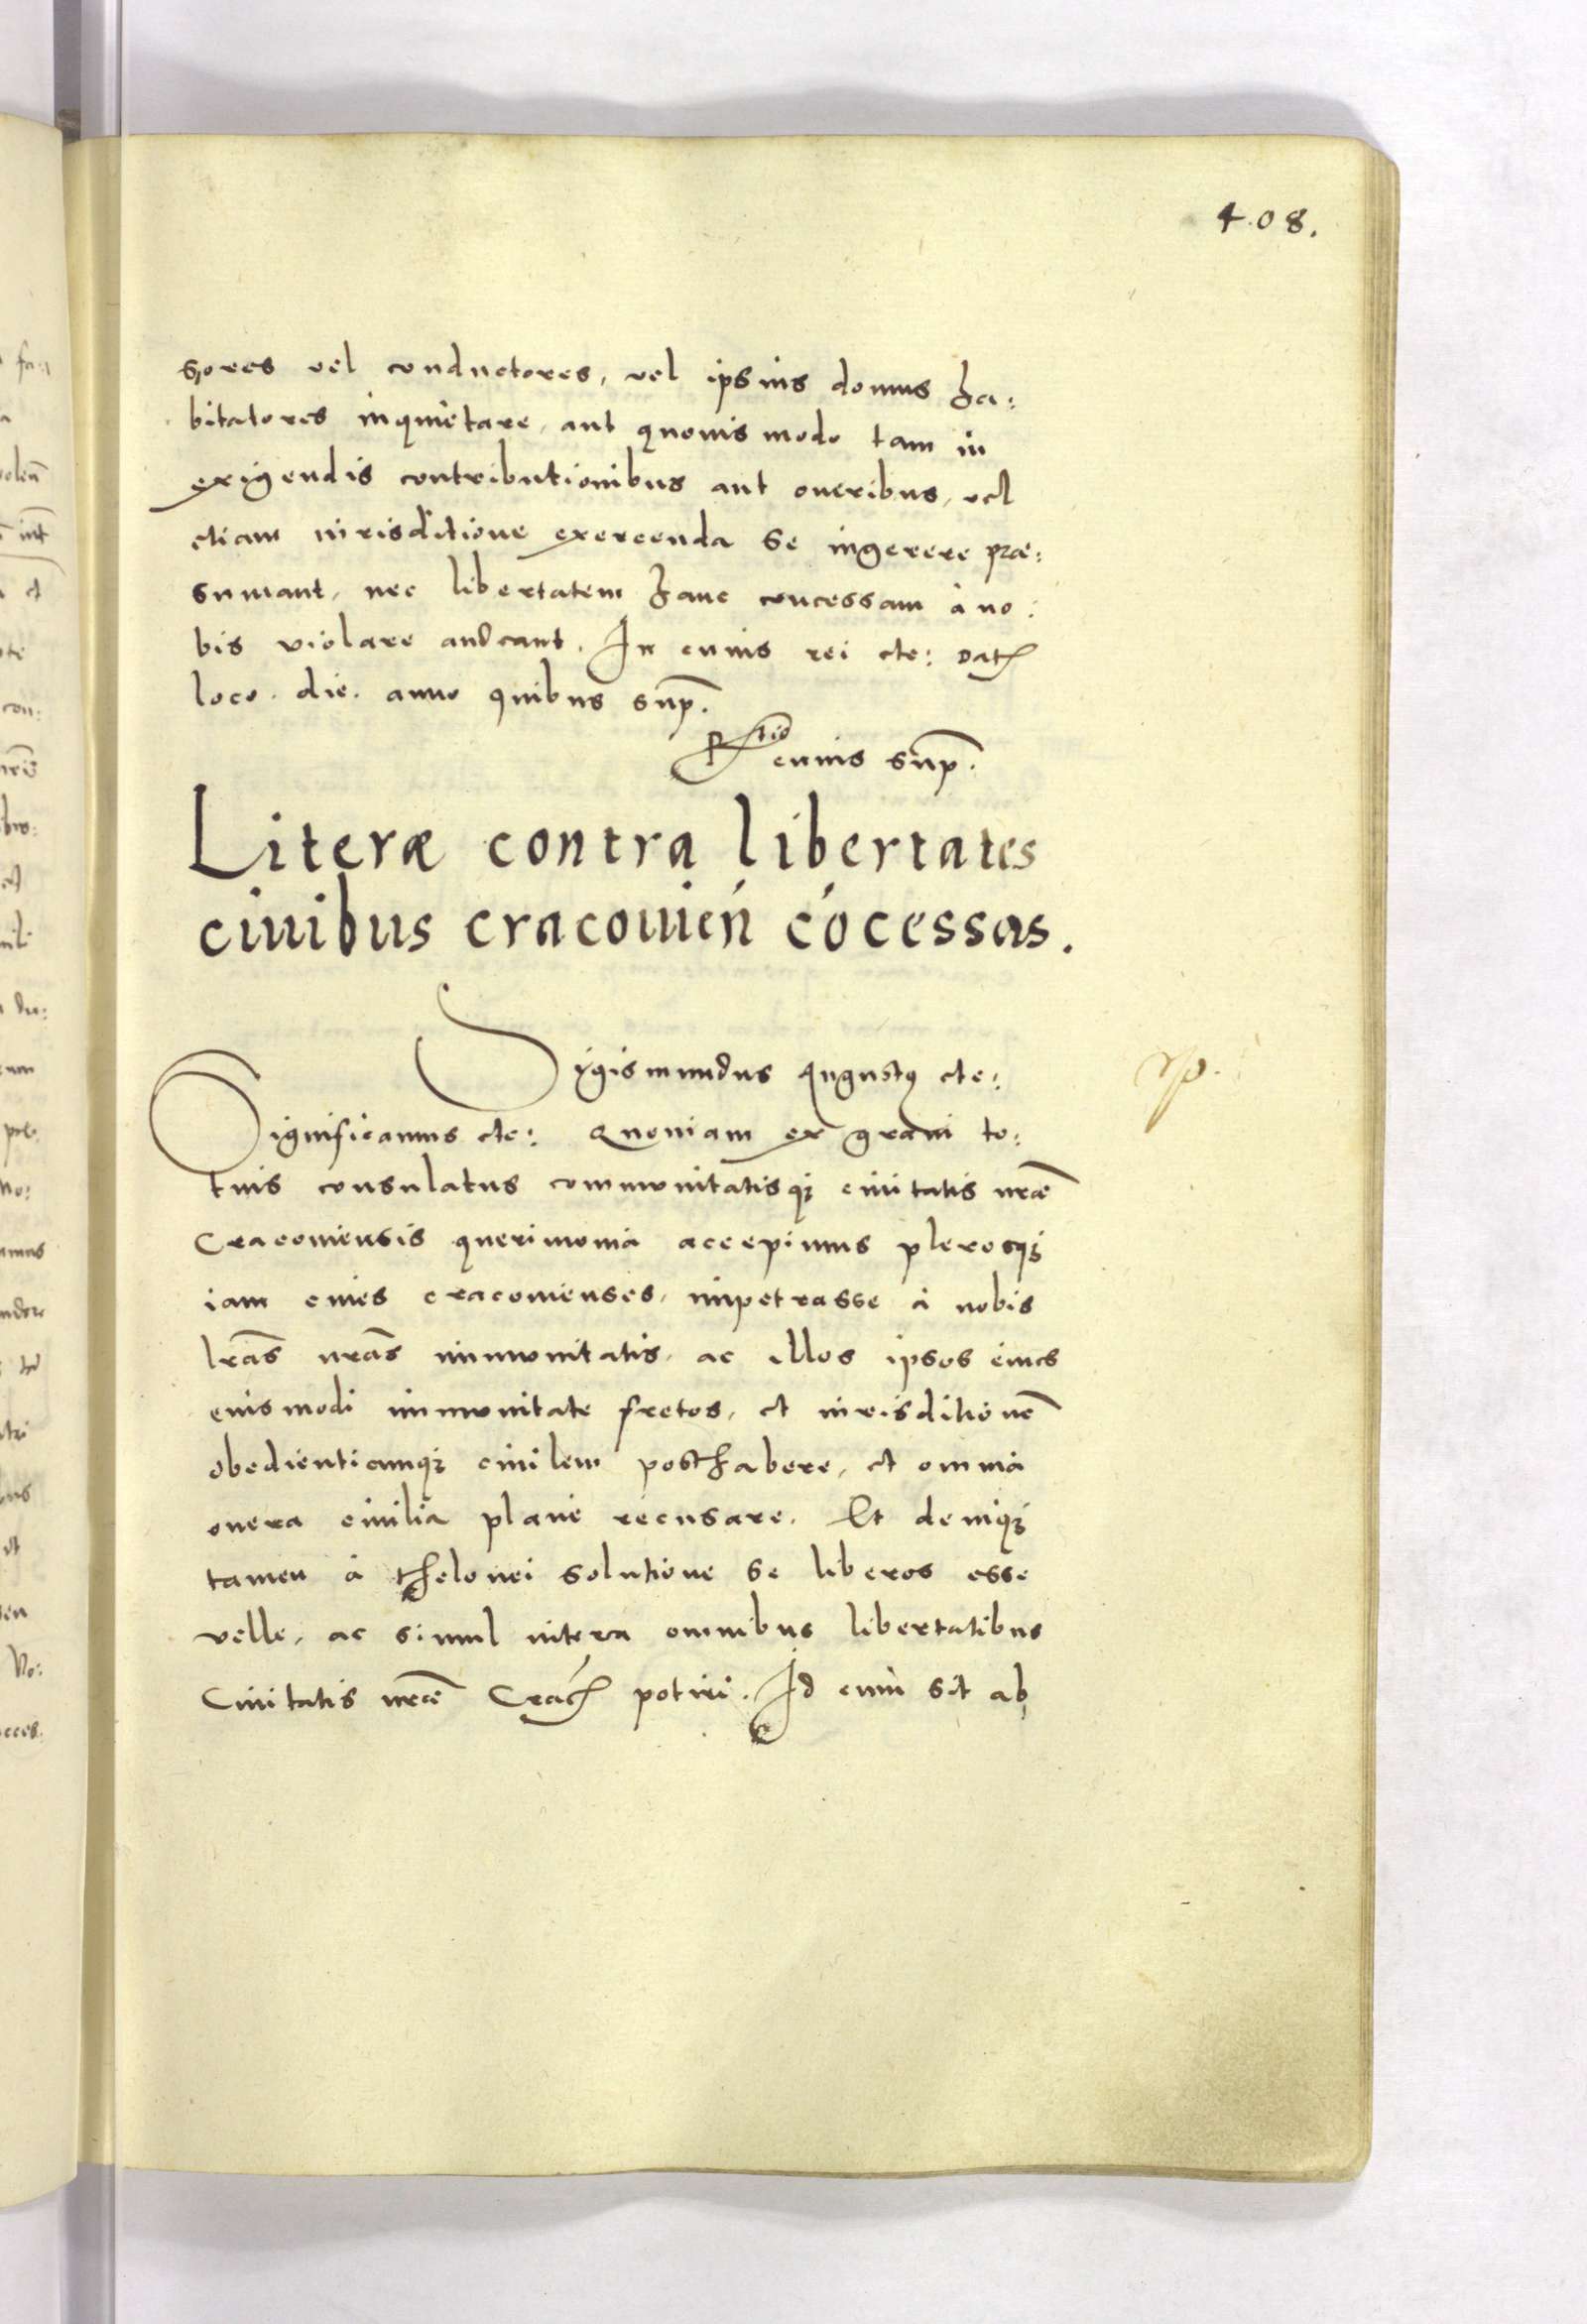 408.
sores vel conductores, vel ipsius domus ha:
bitatores inquietare, aut quouis modo tam in
exigendis contributionibus aut oneribus, vel
etiam iurisditione exercenda se ingerere præ:
sumant, nec libertatem hanc concessam à no:
bis violare audeant. In cuius rei etc: Dat
loco. die. anno quibus sup.
Rtio cuius sup.
Literæ contra libertates
ciuibus cracouień cócessas.
Sigismundus Augustus etc:
Significamus etc: Quoniam ex graui to:
tius consulatus communitatisq; ciuitatis nræ
Cracouiensis querimonia accepimus plerosq;
iam ciues cracouienses, impetrasse à nobis
lras nras immunitatis, ac illos ipsos ciues
eiusmodi immunitate fretos, et iurisditionē
obedientiamq; ciuilem posthabere, et omnia
onera ciuilia plane recusare. Et deniq;
tamen à thelonei solutione se liberos esse
velle, ac simul vitera omnibus libertatibus
Ciuitatis nræ Crac potiri. Id cum sit ab